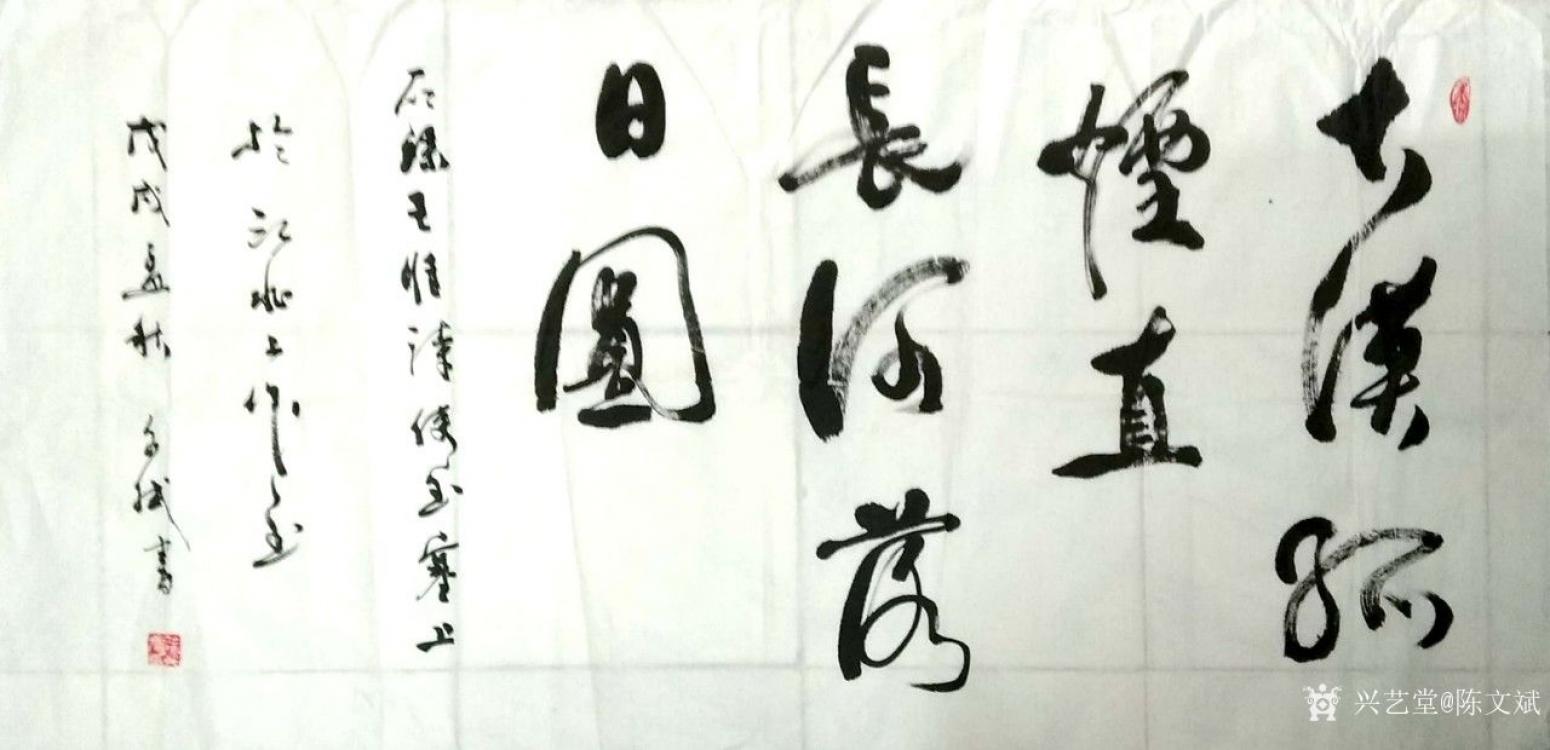 大漠孤
煙直
長河落
日圓
右録王維詩使至塞上
於
上作
戊戌孟秋文斌書
兴艺堂@陈文斌